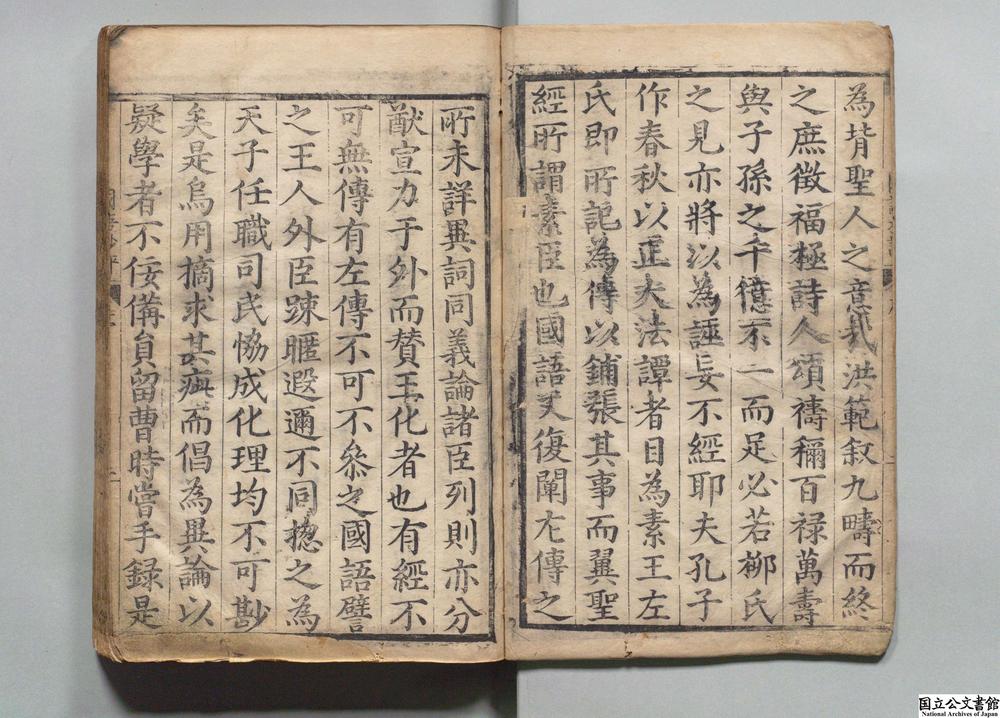 為背聖人之意我洪範叙九疇而終
之庶徴福極詩人頌禱稱百禄萬壽
與子孫之千億不一而足必若栁氏
之見亦將以為誣妄不經耶夫孔子
作春秋以正大法譚者目為素王左
氏即所記為傳以鋪張其事而翼聖
經所謂素臣也國語又復闡左傳之
所未詳異詞同義論諸臣列則亦分
猷宣力于外而賛王化者也有經不
可無傳有左傳不可不叅之國語譬
之王人外臣踈暱遐邇不同揔之為
天子任職司民恊成化理均不可尠
矣是烏用摘求其疵而倡為異論以
疑學者不佞備員留曹時嘗手録是
国立公文書館
National Archives of Japan